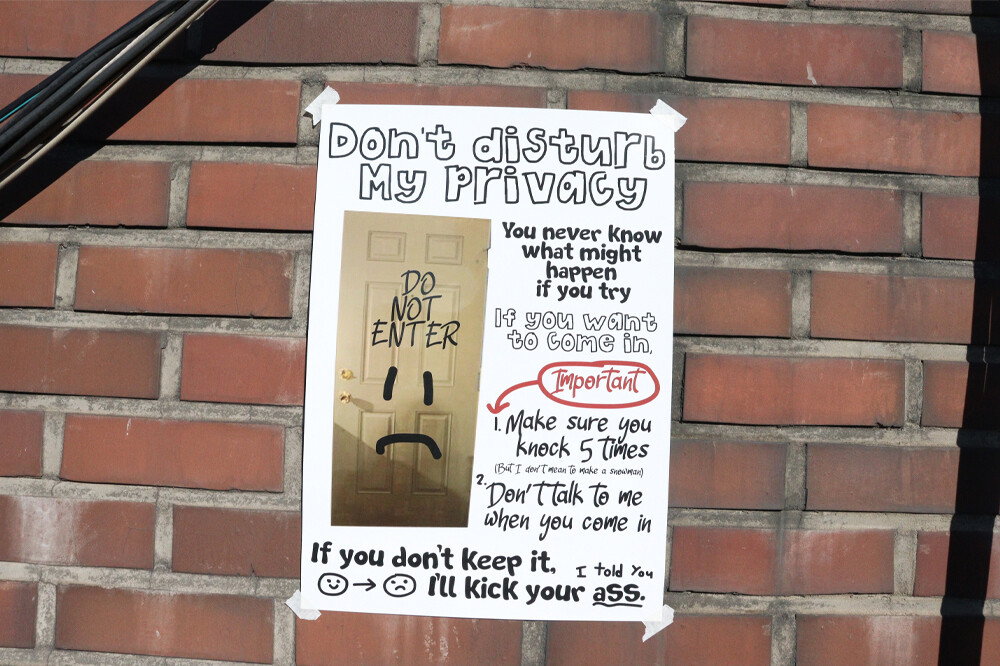 Don't disturb
My privacy
DO
NOT
ENTER
You never know
what might
happen
if you try
If you want
to come in,
Important
1. Make sure you
knock 5 times
(But I don't mean to make a snowman)
2. Don't Talk to me
when you come in
If you don't keep it, I told you
→ I'll kick your ass.